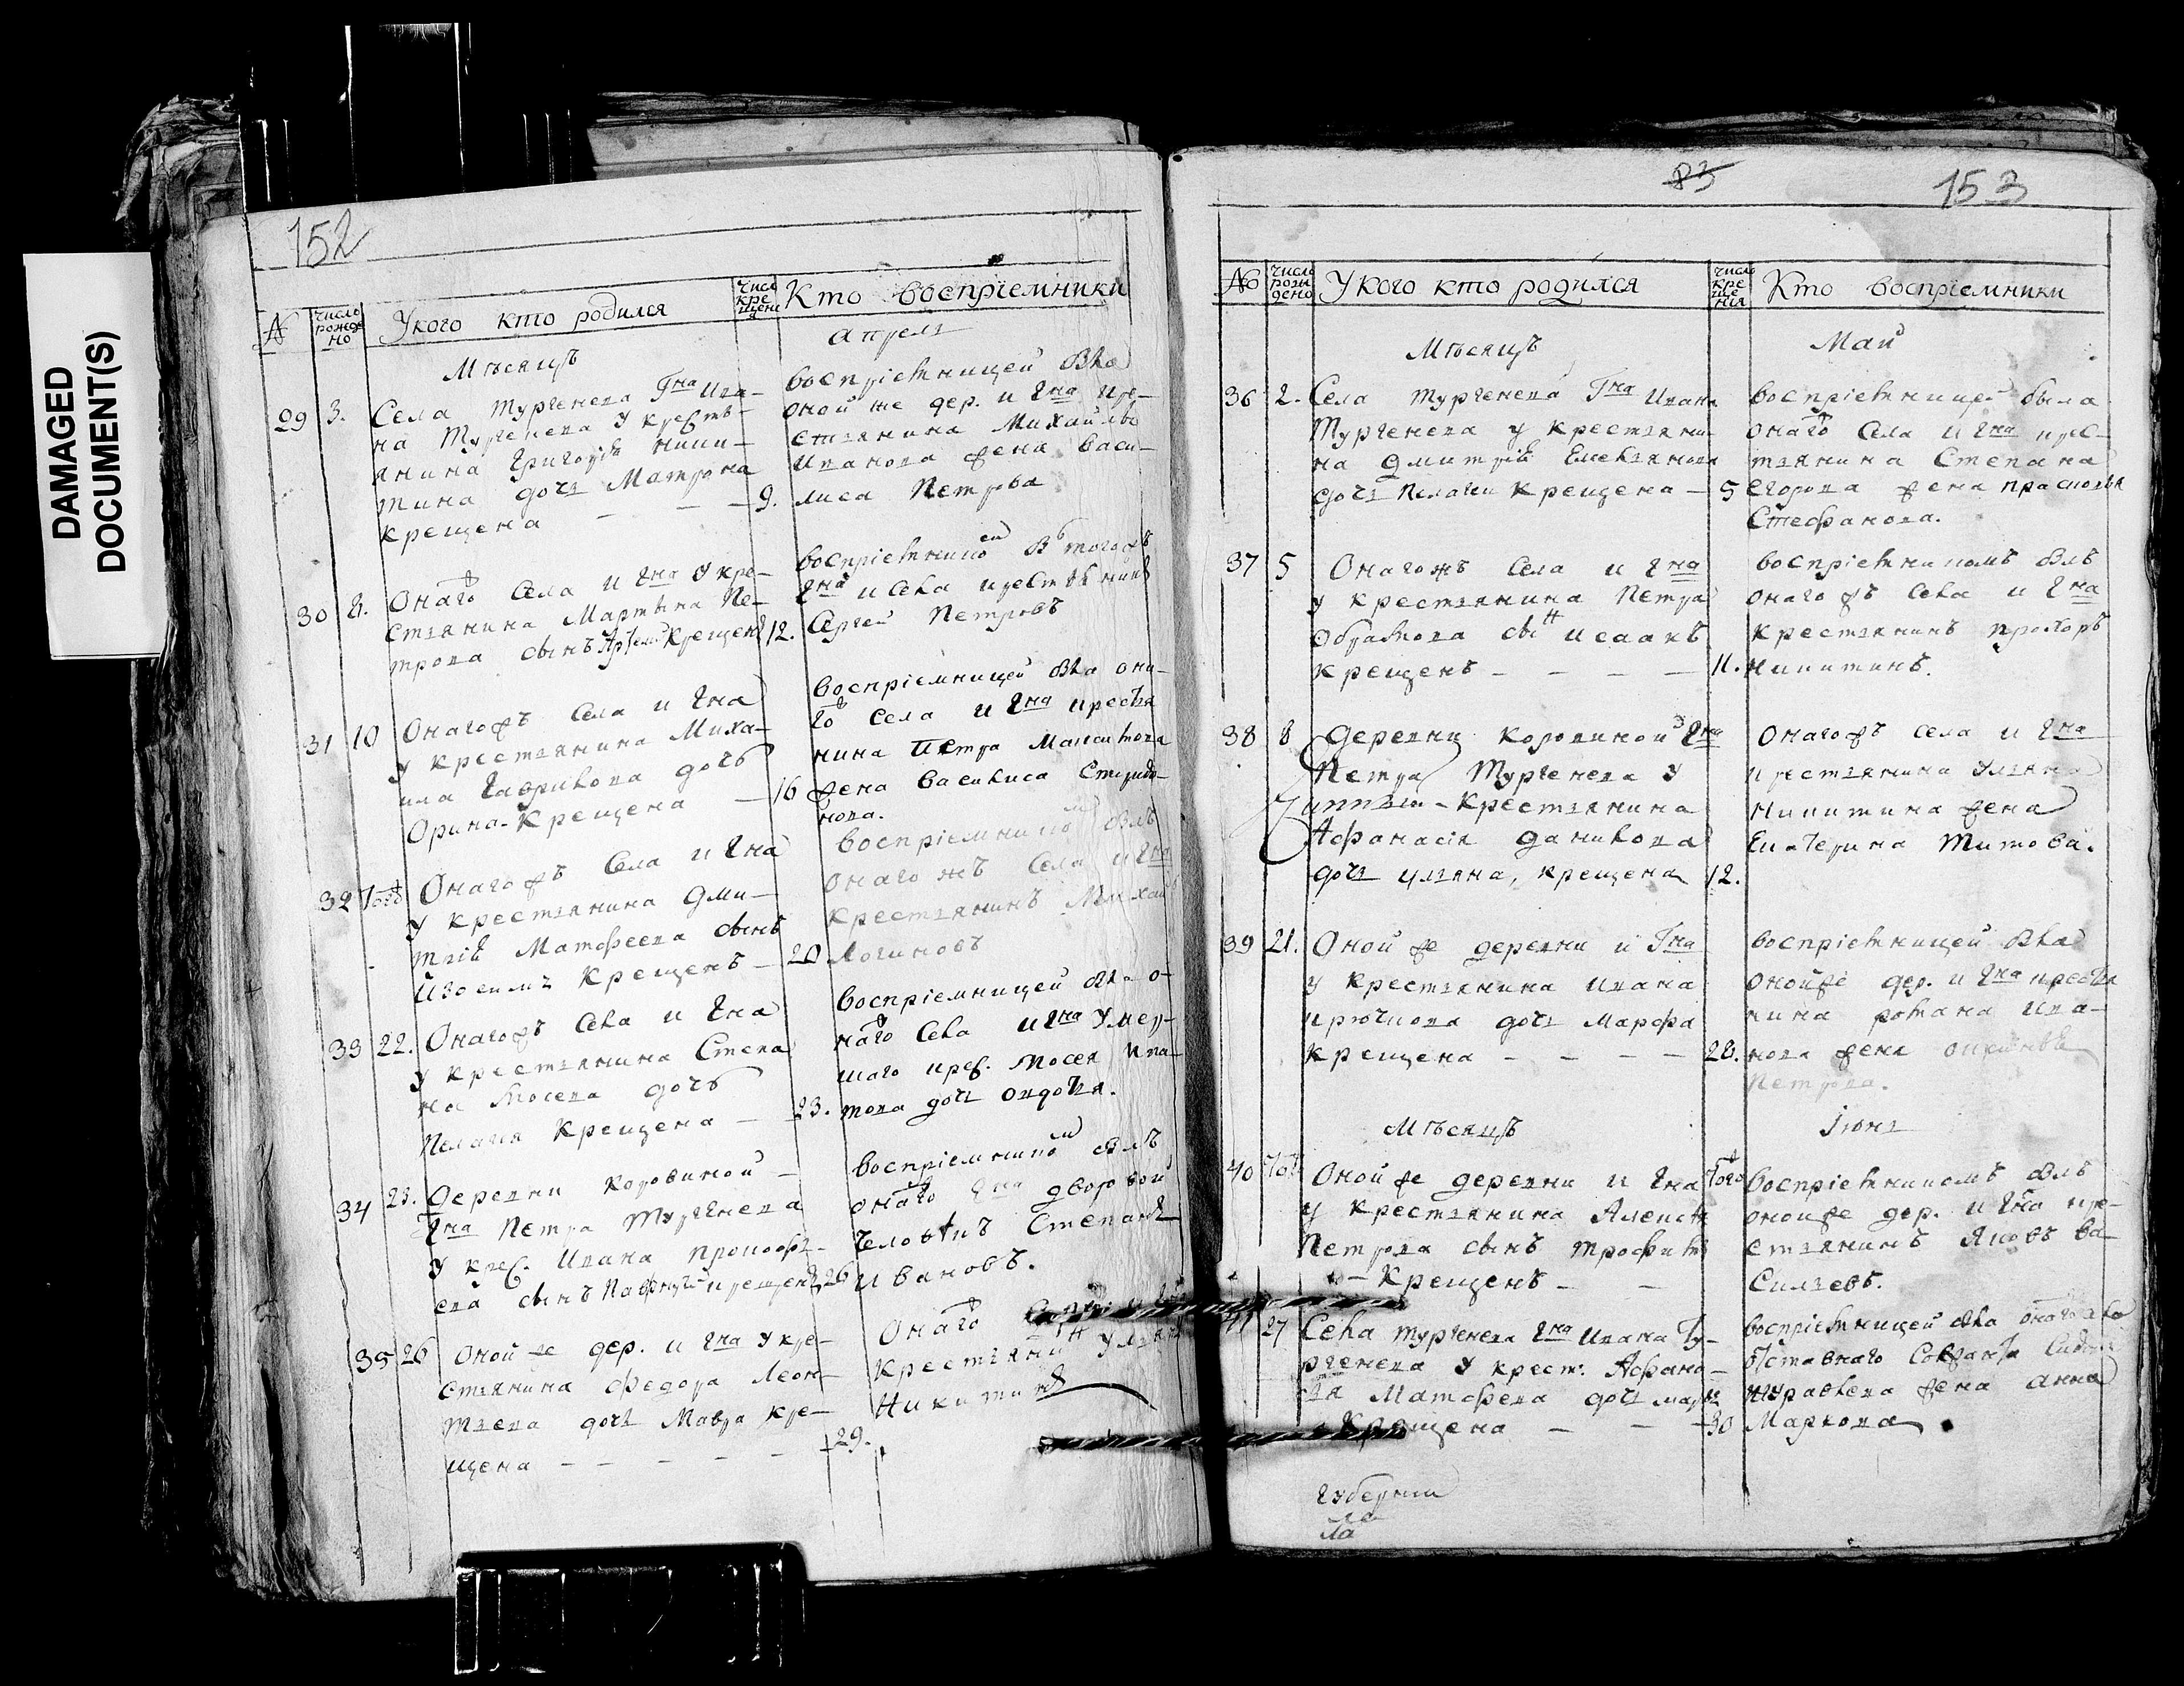 DAMAGED
DOCUMENT(S)
152
№
число рожде но
У кого кто родился
число кре щени
Кто воспріемники
Мѣсяцъ
Апрель
29
3.
Села Тургенева Гна Ива-
на Тургенева у кресть-
янина Григорія Ники-
тина дочь Матрона
крещена
9.
воспріемницей была
оной же дер. и Гна кре-
стьянина Михайла
Иванова жена Васи-
лиса Петрова
30
Онаго Села и Гна у кре-
стьянина Мартына Пе-
трова сынъ Артемій крещенъ
12.
воспріемникомъ б тогожъ
Гна и села крестьянинъ
Сергей Петровъ
31
10
Онагожъ Села и Гна
у крестьянина Миха-
ила Гаврилова дочь
Орина - крещена
16
воспріемницей была она-
го села и Гна крестья
нина Петра Максимова
жена Василиса Спиридо-
нова.
32
Тогожъ
Онагожъ Села и Гна
у крестьянина Дми-
трія Матфеева сынъ
Изосимъ крещенъ
20
воспріемникомъ былъ
онагожъ Села и Гна
крестьянинъ Михайла
Логиновъ
33
22.
Онагожъ Села и Гна
у крестьянина Степа
на Мосева дочь
Пелагея крещена
23.
воспріемницей была о-
наго Села и Гна умер-
шаго крес. Мосея Ипа-
това дочь Овдотья.
34
23.
Деревни Коровиной
Гна Петра Тургенева
у крес. Ивана Прокофь-
ева сынъ Пафнутій крещенъ
26
воспріемникомъ былъ
онаго Гна дворовой
человѣкъ Степанъ
Ивановъ.
35
26
Оной же дер. и Гна у кре-
стьянина Федора Леон-
тьева дочь Мавра кре-
щена
29.
Онаго Села и Гна
крестьянинъ Ульянъ
Никитинъ
83
153
№
число рожи дено
У кого кто родился
число кре ще нія
Кто воспріемники
Мѣсяцъ
Май
36
2.
Села Тургенева Гна Ивана
Тургенева у крестьяни-
на Дмитрія Емельянова
дочь Пелагеи крещена
5
воспріемницей была
онаго Села и Гна крес-
тьянина Степана
Егорова жена Прасковья
Стефанова.
37
5
Онагожъ Села и Гна
у крестьянина Петра
Абрамова сынъ Исаакъ
крещенъ
11.
воспріемникомъ былъ
онагожъ Села и Гна
крестьянинъ Прохоръ
Никитинъ.
38
8
Деревни Коровиной Гна
Петра Тургенева у
крестьянина
Афанасія Данилова
дочь Ульяна, крещена
12.
Онагожъ села и Гна
крестьянина Ульяна
Никитина жена
Екатерина Титова.
39
21.
Оной же деревни и Гна
у крестьянина Ивана
Крючкова дочь Марфа
крещена
28.
воспріемницей была
оной же дер. и Гна крестья
нина Романа Ива-
нова жена
Петрова.
Мѣсяцъ
Іюнь
40
Оной же деревни и Гна
у крестьянина Алексѣя
Петрова сынъ Трофимъ
крещенъ
Того
воспріемникомъ былъ
оной же дер. и Гна кре-
стьянинъ Яковъ Ва-
сильевъ.
41
27
Села Тургенева Гна Ивана Ту-
ргенева у крест: Афана-
сья Матфеева дочь Марья
Крещена
30
воспріемницей была онаго села
отставнаго Сержанта Сидора
Журавлева жена Анна
Маркова
Губерніи
ла
ла